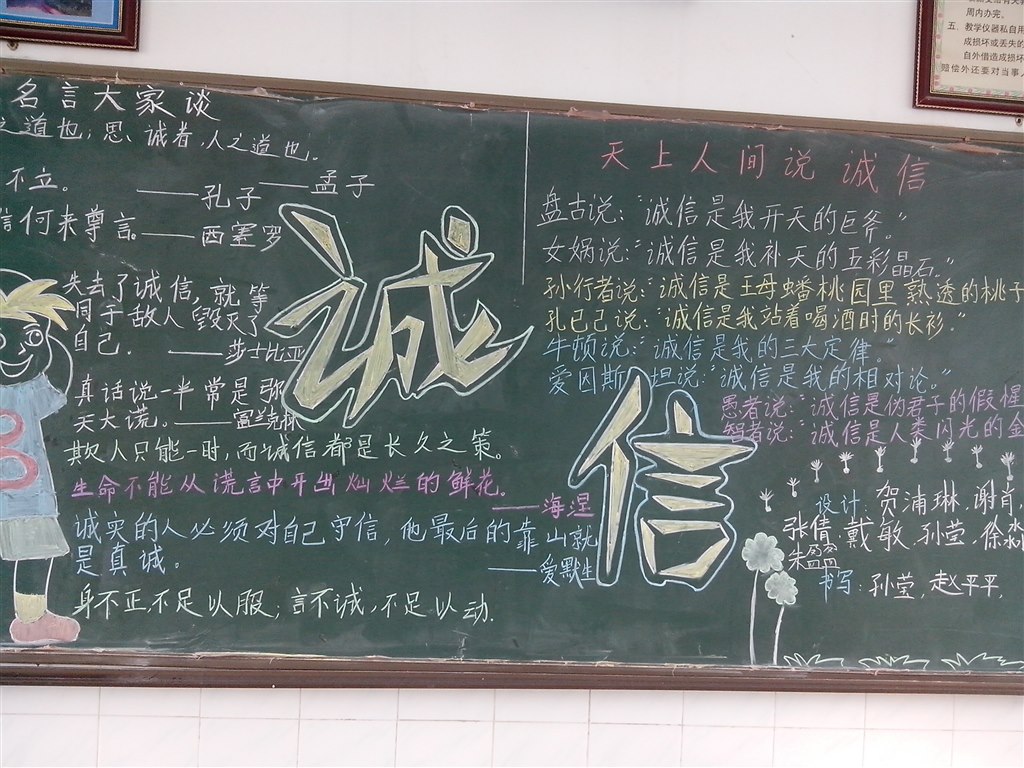 名言大家谈
之道也；思诚者，人之道也。
——孟子
不立。 ——孔子
信何来尊言。——西塞罗
失去了诚信，就等
同于敌人毁灭了
自己. ——莎士比亚
真话说一半常是弥
天大谎。——富兰克林
欺人只能一时，而诚信都是长久之策。
生命不能从谎言中开出灿烂的鲜花。
——海涅
诚实的人必须对自己守信，他最后的靠山就
是真诚。 ——爱默生
身不正，不足以服；言不诚，不足以动.
诚
信
天上人间说诚信
盘古说：“诚信是我开天的巨斧。”
女娲说：“诚信是我补天的五彩晶石.”
孙行者说：“诚信是王母蟠桃园里熟透的桃子
孔已己说：“诚信是我站着喝酒时的长衫.”
牛顿说：“诚信是我的三大定律。”
爱因斯坦说：“诚信是我的相对论。”
愚者说：“诚信是伪君子的假惺
智者说：“诚信是人类闪光的金
设计：贺浦琳，谢肖，
张倩，戴敏，孙莹，徐
朱盈盈
书写：孙莹，赵平平，
周内办完。
五、教学仪器私自用
成损坏或丢失的
自外借造成损坏
赔偿外还要对当事人